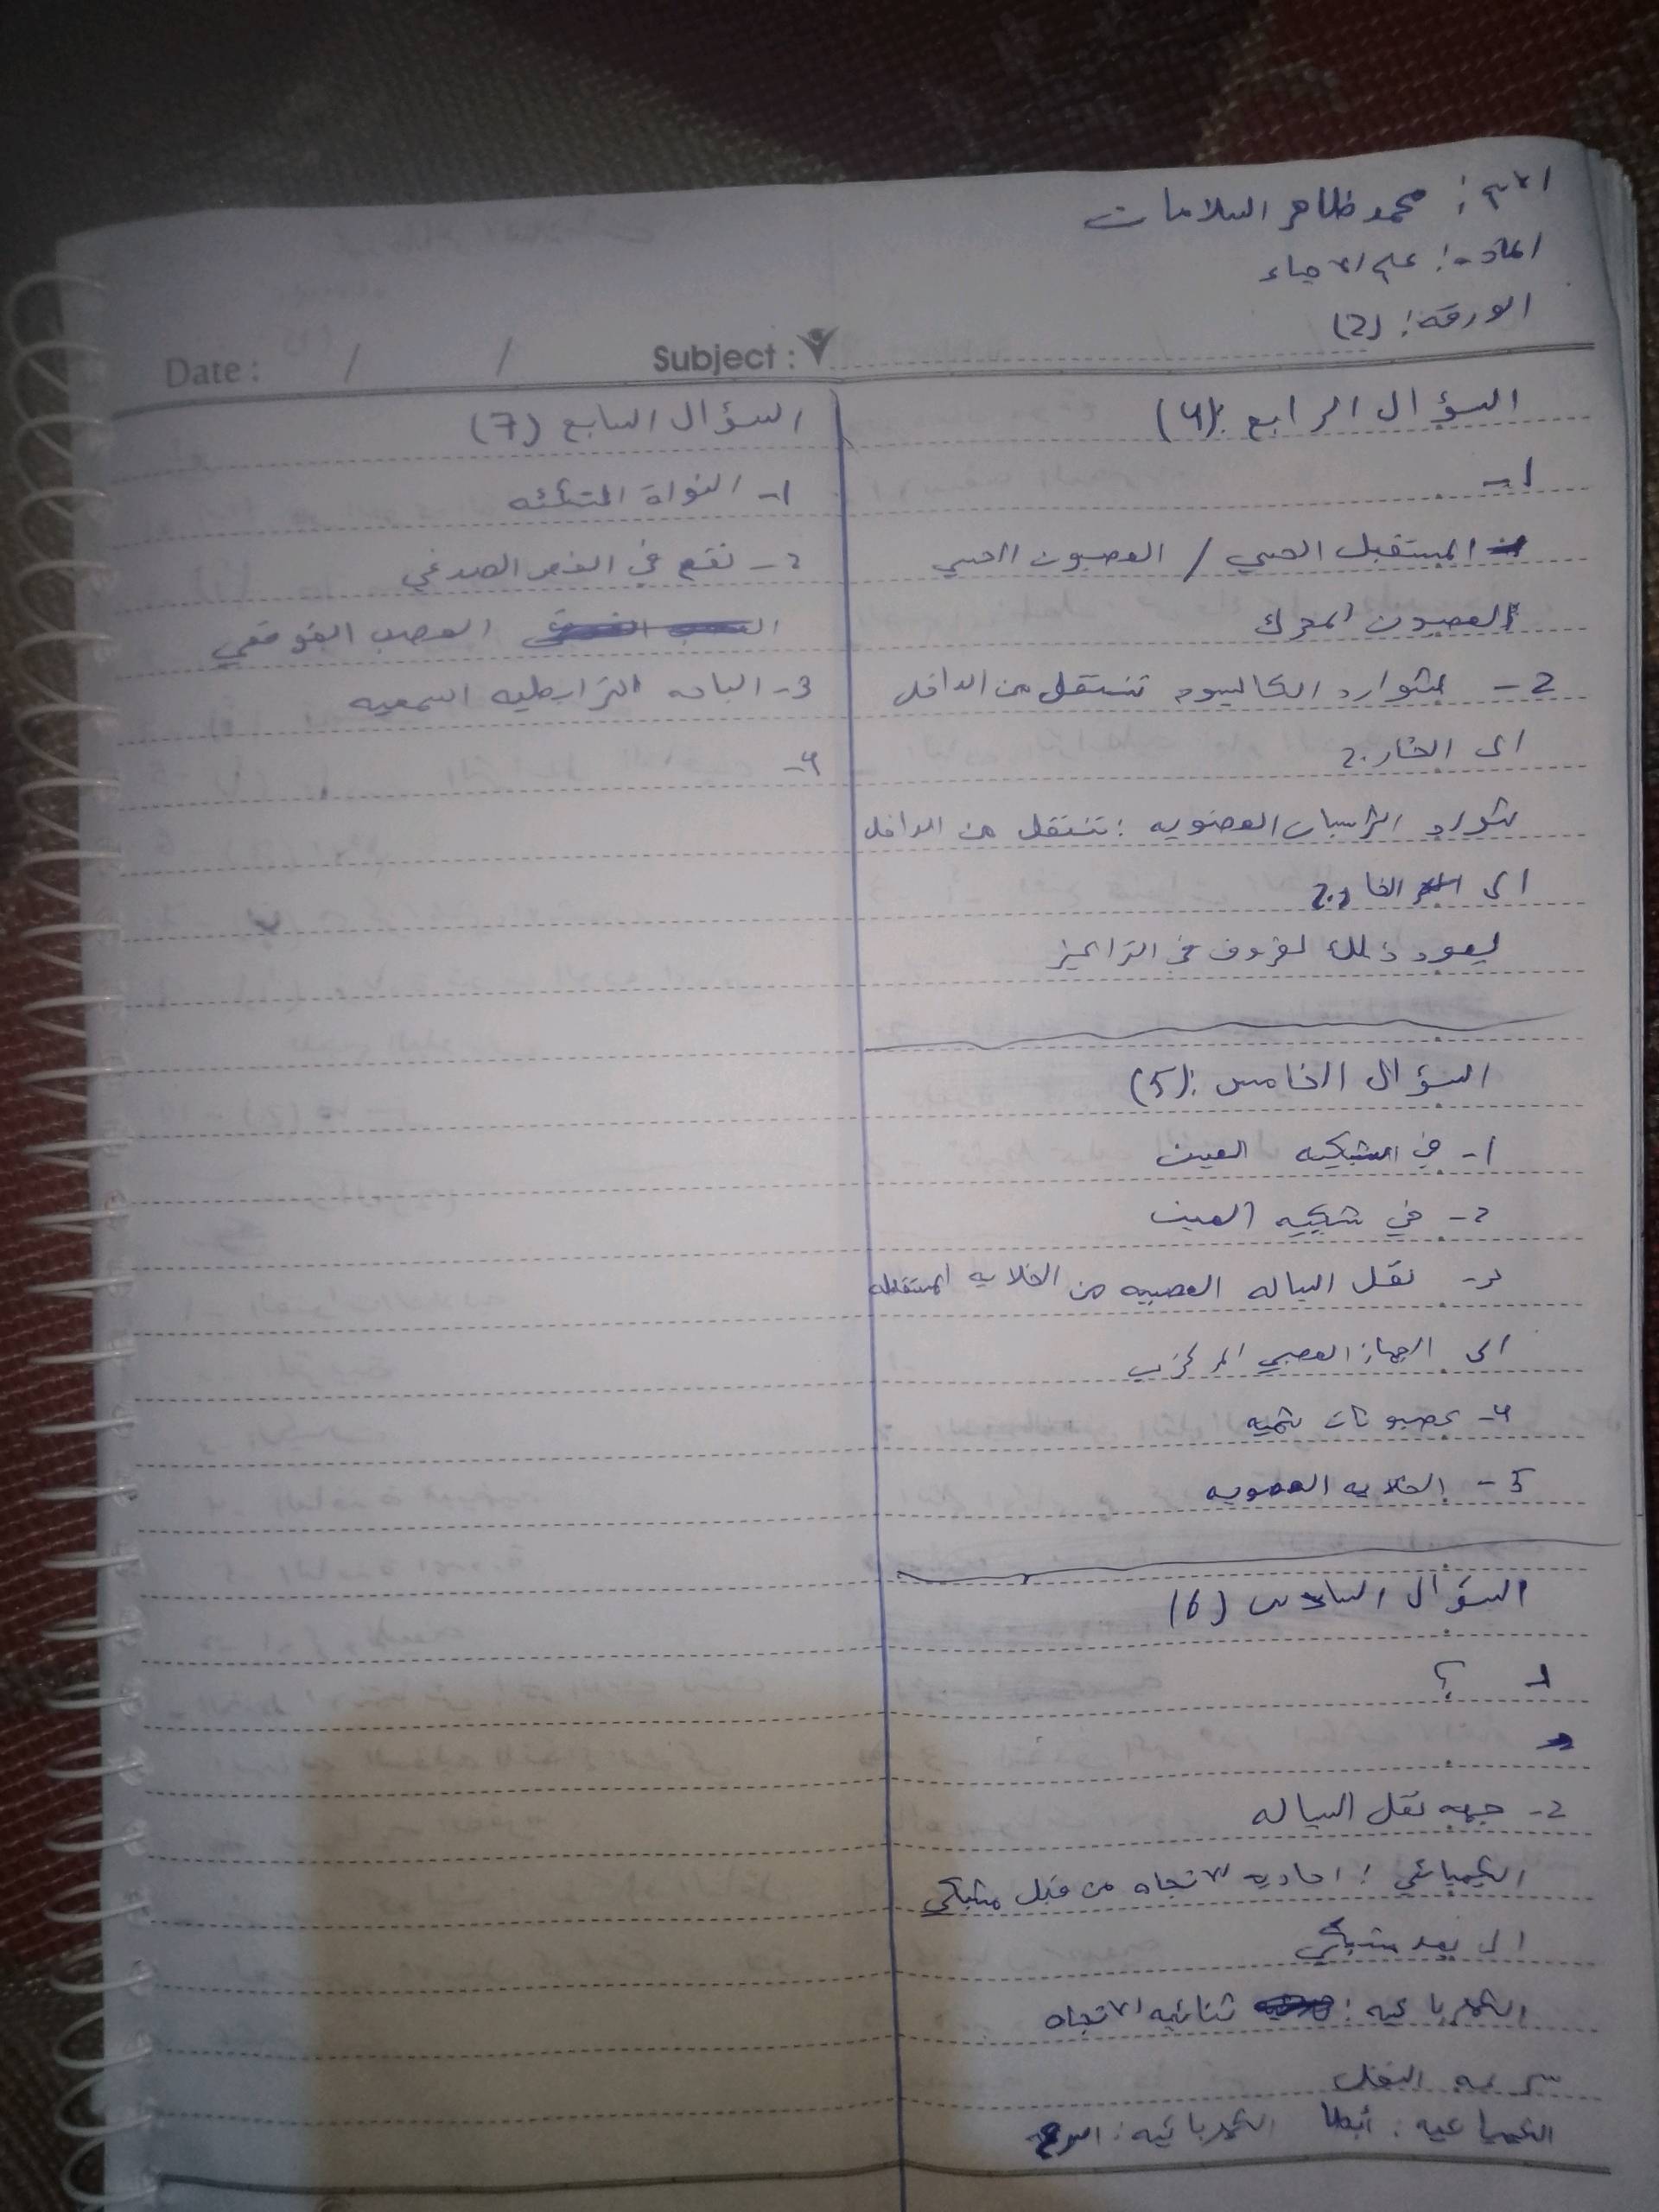 الاسم: محمد ظاهر السلامات
المادة: علم الاحياء
الورقة: (2)
Date: / / Subject:
السؤال الرابع: (4)
1-
المستقبل الحسي / العصبون الحسي
العصبون المحرك
2- شوارد الكالسيوم تنتقل من الداخل
الى الخارج
شوارد الشرسبات العضويه: تنتقل من الداخل
الى الخارج
يعود ذلك لفروق في التراكيز
السؤال الخامس: (5)
1- في الشبكيه العين
2- في شبكيه العين
3- نقل السياله العصبيه من الخلايه المستقبله
الى الجهاز العصبي المركزي
4- عصبونات شميه
5- الخلايه العضويه
السؤال السادس (6)
1 ؟
2- جهه نقل السياله
الكيميائي: احاديه الاتجاه من قبل مشبكي
الى بعد مشبكي
الكهربائيه: ثنائيه الاتجاه
سرعه النقل
الكيميائيه: أبطا الكهربائيه: اسرع
السؤال السابع (7)
1- النواة المتكئه
2- تقع في الفص الصدغي
العصب القوقعي
3- الباحه الترابطيه السمعيه
4-